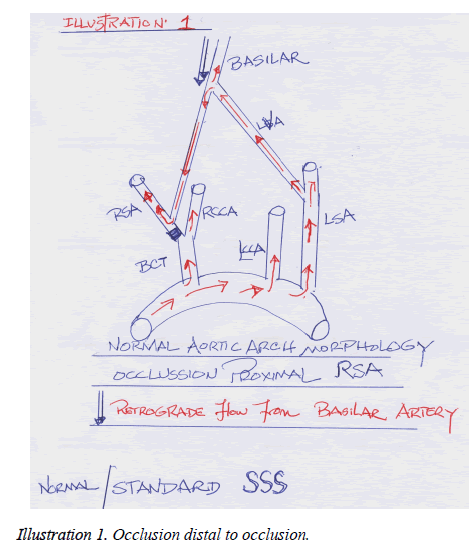 ILLUSTRATION: 1
BASILAR
LVA
RSA
RCCA
LCCA
LSA
BCT
NORMAL AORTIC ARCH MORPHOLOGY
OCCLUSSION PROXIMAL RSA
RETROGRADE flow from BASILAR ARTERY
NORMAL / STANDARD SSS
Illustration 1. Occlusion distal to occlusion.